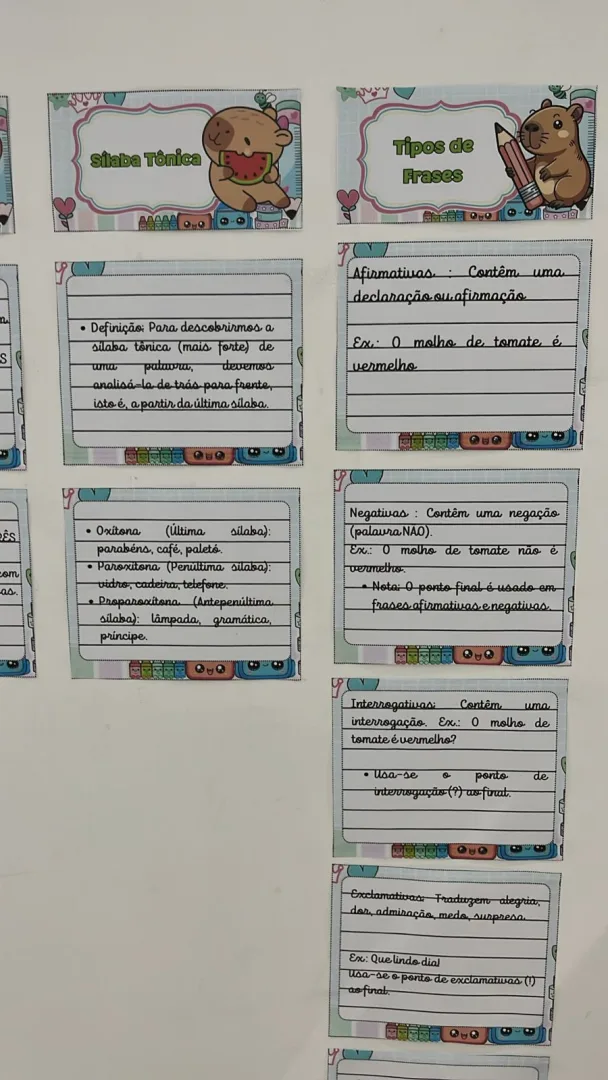 Sílaba Tônica
• Definição: Para descobrirmos a
sílaba tônica (mais forte) de
uma palavra, devemos
analisá-la de trás para frente,
isto é, a partir da última sílaba.
• Oxítona (Última sílaba):
parabéns, café, paletó.
• Paroxítona (Penúltima sílaba):
vidro, cadeira, telefone.
• Proparoxítona (Antepenúltima
sílaba): lâmpada, gramática,
príncipe.
Tipos de
Frases
Afirmativas : Contêm uma
declaração ou afirmação
Ex.: O molho de tomate é
vermelho
Negativas : Contêm uma negação
(palavra NÃO).
Ex.: O molho de tomate não é
vermelho.
• Nota: O ponto final é usado em
frases afirmativas e negativas.
Interrogativas: Contêm uma
interrogação. Ex.: O molho de
tomate é vermelho?
• Usa-se o ponto de
interrogação (?) ao final.
Exclamativas: Traduzem alegria,
dor, admiração, medo, surpresa.
Ex: Que lindo dia!
Usa-se o ponto de exclamativas (!)
ao final.